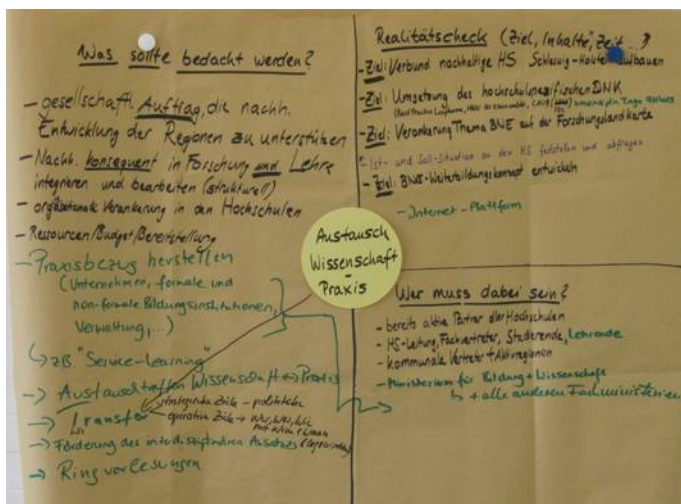 Was sollte bedacht werden?
- gesellschaftl. Auftrag, die nachh.
Entwicklung der Regionen zu unterstützen
- Nachh. konsequent in Forschung und Lehre
integrieren und bearbeiten (strukturell)
- Verankerung in den Hochschulen
- Ressourcen/Budget/Bereitstellung
- Praxisbezug herstellen
(Unternehmen, formale und
non-formale Bildungsinstitutionen,
Verwaltung,...)
↳ z.B. "Service-Learning"
→ Austauschtreffen Wissenschaft ↔ Praxis
strategische Ziele - politische
→ Transfer
operative Ziele → Wer, Was, Wie
→ Förderung des interdisziplinären Ansatzes
→ Ringvorlesungen
Austausch
Wissenschaft
-
Praxis
Realitätscheck (Ziel, Inhalte, Zeit ...)
- Ziel: Verbund nachhaltige HS Schleswig-Holstein aufbauen
- Ziel: Umsetzung des hochschulspezifischen DNK
- Ziel: Verankerung Thema BNE auf der Forschungslandkarte
Ist- und Soll-Situation an den HS feststellen und abfragen
- Ziel: BNE-Weiterbildungskonzept entwickeln
- Internet-Plattform
Wer muss dabei sein?
- bereits aktive Partner aller Hochschulen
- HS-Leitung, Fachvertreter, Studierende, Lehrende
- kommunale Vertreter + Aktivregionen
- Ministerium für Bildung + Wissenschaft
↳ + alle anderen Fachministerien